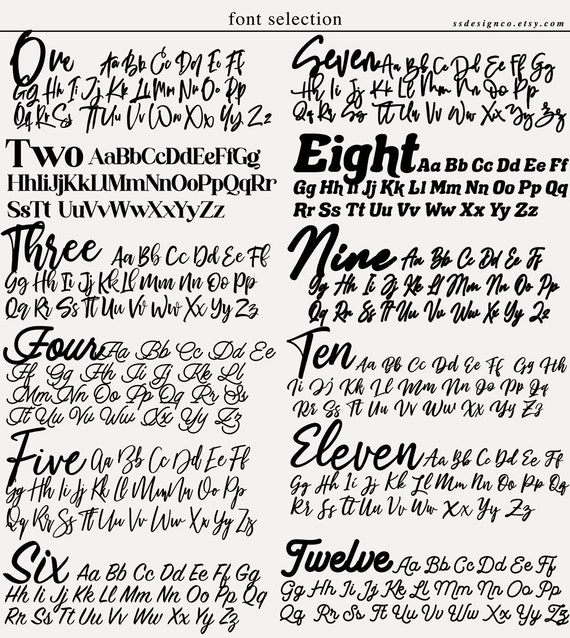 font selection
ssdesignco.etsy.com
One Aa Bb Cc Dd Ee Ff
Gg Hh Ii Jj Kk Ll Mm Nn Oo Pp
Qq Rr Ss Tt Uu Vv Ww Xx Yy Zz
Two AaBbCcDdEeFfGg
HhIiJjKkLlMmNnOoPpQqRr
SsTt UuVvWwXxYyZz
Three Aa Bb Cc Dd Ee Ff
Gg Hh Ii Jj Kk Ll Mm Nn Oo Pp
Qq Rr Ss Tt Uu Vv Ww Xx Yy Zz
Four Aa Bb Cc Dd Ee
Ff Gg Hh Ii Jj Kk Ll
Mm Nn Oo Pp Qq Rr Ss
Tt Uu Vv Ww Xx Yy Zz
Five Aa Bb Cc Dd Ee Ff
Gg Hh Ii Jj Kk Ll Mm Nn Oo Pp
Qq Rr Ss Tt Uu Vv Ww Xx Yy Zz
Six Aa Bb Cc Dd Ee Ff Gg
Hh Ii Jj Kk Ll Mm Nn Oo Pp Qq
Rr Ss Tt Uu Vv Ww Xx Yy Zz
Seven Aa Bb Cc Dd Ee Ff Gg
Hh Ii Jj Kk Ll Mm Nn Oo Pp
Qq Rr Ss Tt Uu Vv Ww Xx Yy Zz
Eight Aa Bb Cc Dd Ee Ff
Gg Hh Ii Jj Kk Ll Mm Nn Oo Pp Qq
Rr Ss Tt Uu Vv Ww Xx Yy Zz
Nine Aa Bb Cc Dd Ee Ff
Gg Hh Ii Jj Kk Ll Mm Nn Oo Pp
Qq Rr Ss Tt Uu Vv Ww Xx Yy Zz
Ten Aa Bb Cc Dd Ee Ff Gg Hh
Ii Jj Kk Ll Mm Nn Oo Pp Qq
Rr Ss Tt Uu Vv Ww Xx Yy Zz
Eleven Aa Bb Cc Dd Ee Ff
Gg Hh Ii Jj Kk Ll Mm Nn Oo Pp Qq
Rr Ss Tt Uu Vv Ww Xx Yy Zz
Twelve Aa Bb Cc Dd Ee Ff
Gg Hh Ii Jj Kk Ll Mm Nn Oo Pp
Qq Rr Ss Tt Uu Vv Ww Xx Yy Zz